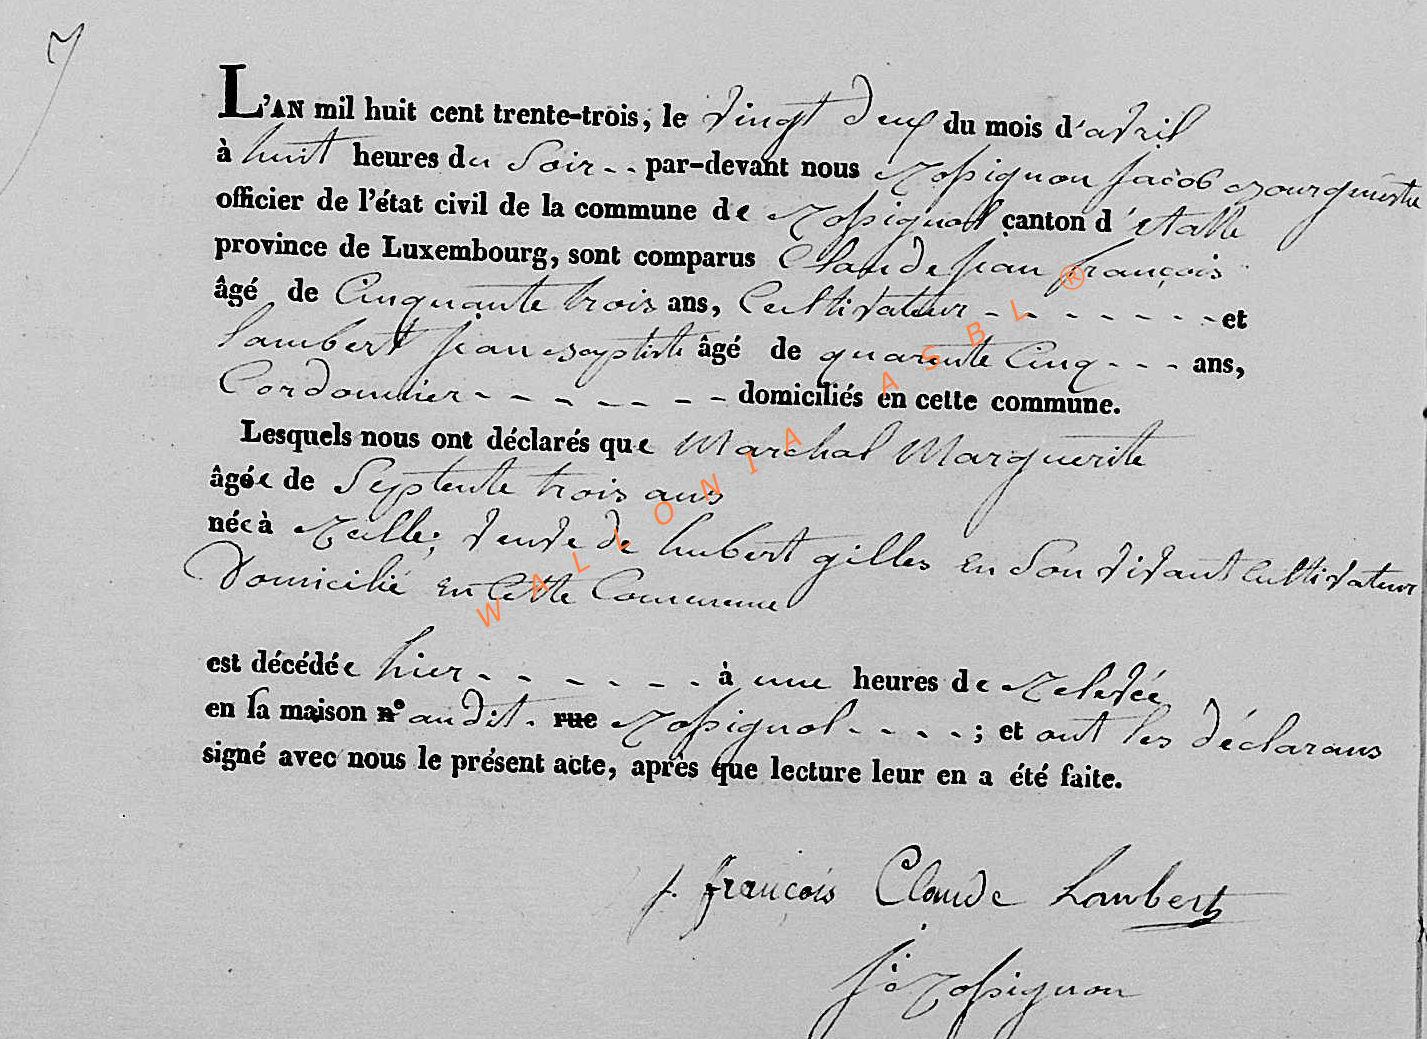 7
L'AN mil huit cent trente-trois, le vingt deux du mois d'avril
à huit heures du Soir -- par-devant nous Rossignon Jacob Bourgmestre
officier de l'état civil de la commune de Rossignol canton d'Etalle
province de Luxembourg, sont comparus Claude Jean françois
âgé de Cinquante trois ans, Cultivateur - - - - - - - - et
Lambert Jean Baptiste âgé de quarente Cinq - - - ans,
Cordonnier - - - - - - - - domiciliés en cette commune.
Lesquels nous ont déclarés que Marchal Marguerite
âgée de Septente trois ans
née à Rulle, veuve de hubert gilles en Son vivant Cultivateur
Domicilié en Cette Commune
est décédée hier - - - - - - - à une heures de Relevée
en la maison n° audit. rue Rossignol - - - - ; et ont les déclarans
signé avec nous le présent acte, après que lecture leur en a été faite.
J. françois Claude Lambert
J. Rossignon
WALLONIA ASBL ®